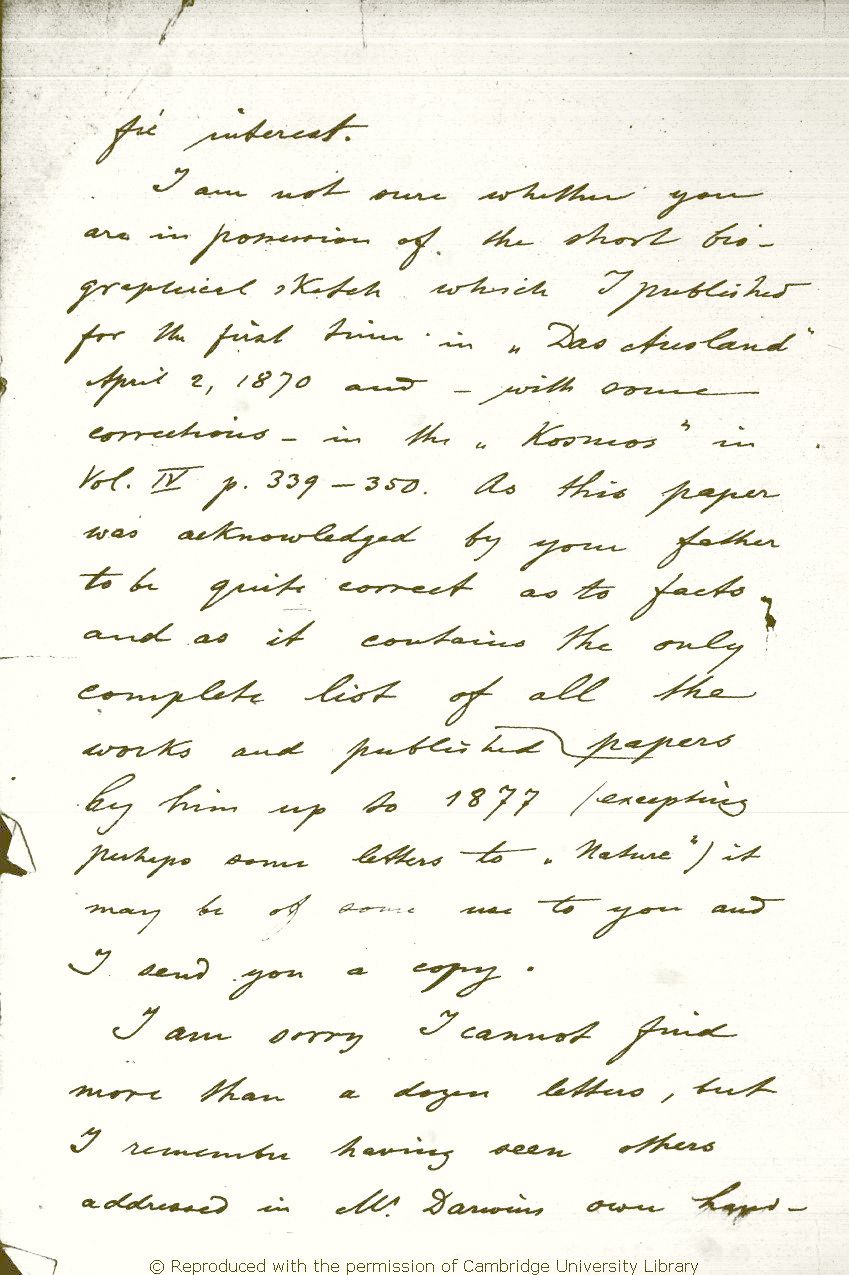 fic interest.
I am not sure whether you
are in possession of the short bio-
graphical sketch which I published
for the first time in „Das Ausland"
April 2, 1870 and – with some
corrections – in the „Kosmos" in
Vol. IV p. 339–350. As this paper
was acknowledged by your father
to be quite correct as to facts
and as it contains the only
complete list of all the
works and published papers
by him up to 1877 (excepting
perhaps some letters to „Nature") it
may be of some use to you and
I send you a copy.
I am sorry I cannot find
more than a dozen letters, but
I remember having seen others
addressed in Mr. Darwins own hand-
© Reproduced with the permission of Cambridge University Library